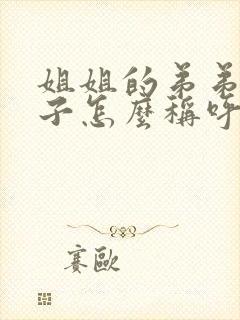 姐姐的弟弟
子怎麼稱呼
賽歐